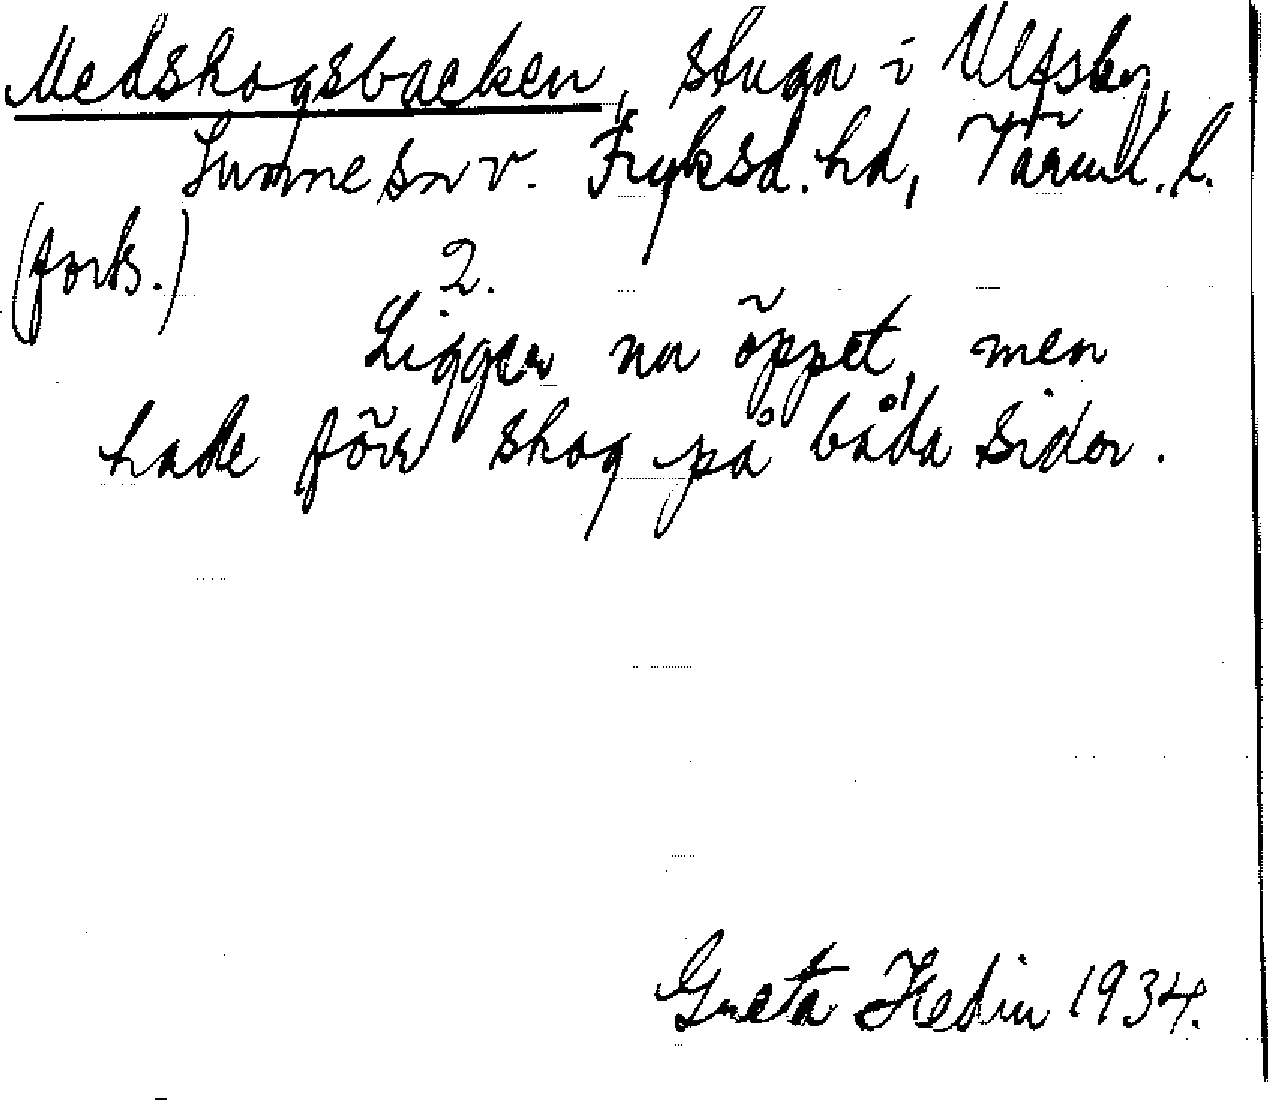 Medskogsbacken, stuga i Ulfsby,
Sunne sn v. Fryksd. hd, Värml. l.
(forts.)
2.
Ligger nu öppet, men
hade förr skog på båda sidor.
Greta Hedin 1934.